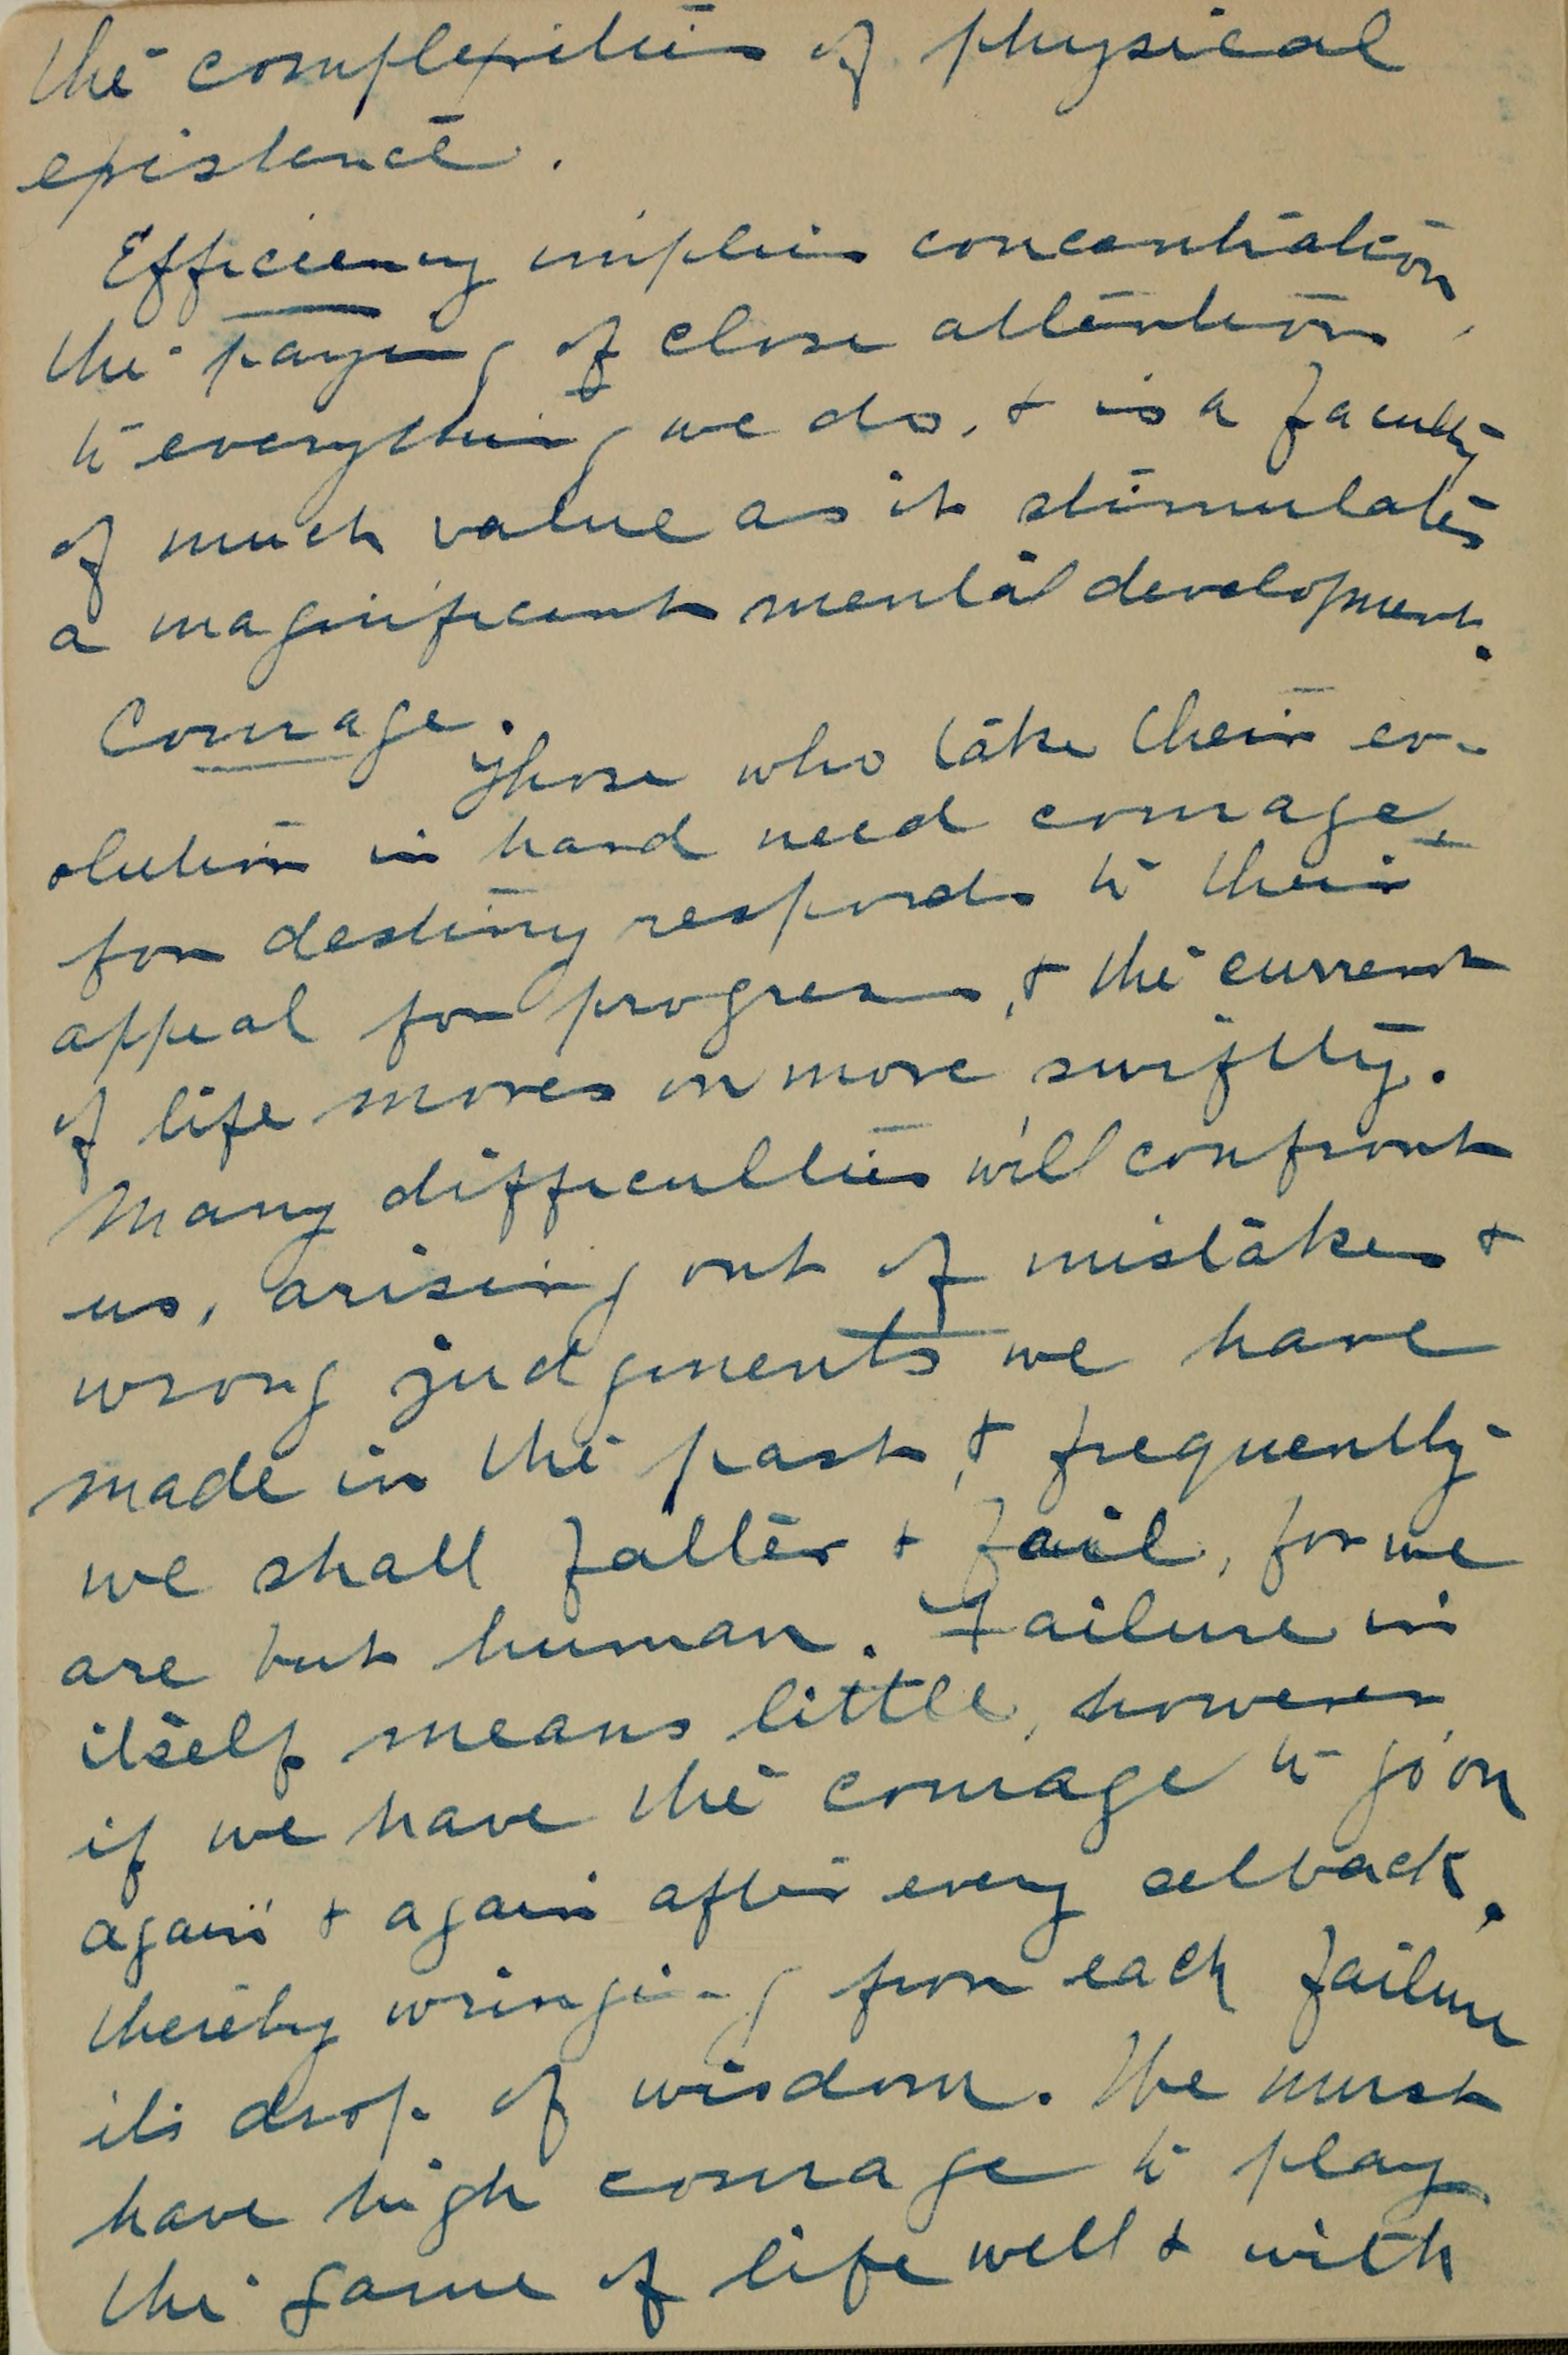 the complexities of physical
existence.
Efficiency implies concentration,
the paying of close attention
to everything we do, & is a faculty
of much value as it stimulates
a magnificent mental development.
Courage.
Those who take their ev-
olution in hand need courage,
for destiny responds to their
appeal for progress, & the current
of life moves on more swiftly.
Many difficulties will confront
us, arising out of mistakes &
wrong judgments we have
made in the past, & frequently
we shall falter & fail, for we
are but human. Failure in
itself means little, however,
if we have the courage to go on
again & again after every setback,
thereby wringing from each failure
its drop of wisdom. We must
have high courage to play
the game of life well & with